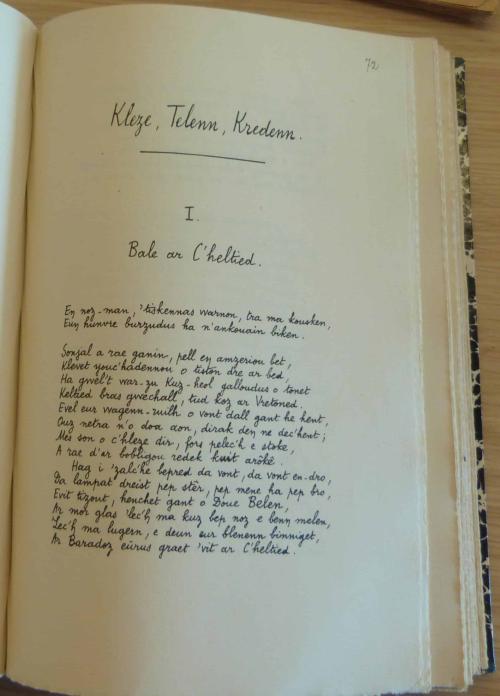 72
Kleze, Telenn, Kredenn.
I.
Bale ar C'heltied.
En noz-man, 'tiskennas warnon, tra ma kousken,
Eun hunvre burzudus ha n'ankouain biken.
Sonjal a rae ganin, pell en amzeriou bet,
Klevet youc'hadennou o tiston dre ar bed,
Ha gwel't war-zu Kuz-heol galloudus o tonet
Keltied bras gwechall, tud koz ar Vretoned.
Evel eur wagenn-ruilh o vont dall gant he hent,
Ouz netra n'o doa aon, dirak den ne dec'hent;
Mes son o c'hleze dir, fors pelec'h e stoke,
A rae d'ar bobligou redek kuit arôkê.
Hag i 'zalc'he bepred da vont, da vont en-dro,
Da lampat dreist pep stêr, pep mene ha pep bro,
Evit tizout, henchet gant o Doue Belen,
Ar mor glas 'lec'h ma kuz bep noz e benn melen,
'Lec'h ma lugern, e deun eur blenenn binniget,
Ar Baradoz eürus graet 'vit ar C'heltied.